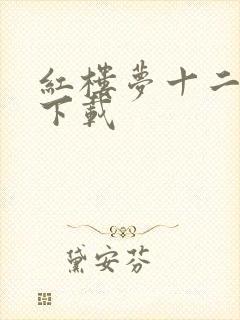 紅樓夢十二
下載
黛安芬